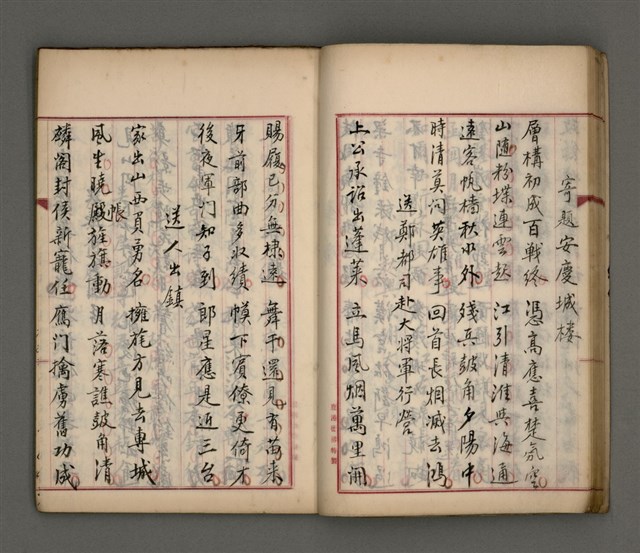 寄題安慶城樓
層構初成百戰終 憑高應喜楚氛空
山隨粉堞連雲起 江引清淮與海通
遠客帆檣秋水外 殘兵鼓角夕陽中
時清莫問英雄事 回首長烟滅去鴻
送鄭都司赴大將軍行營
上公承詔出蓬萊 立馬風烟萬里開
賜履已分無棣遠 舞干還見有苗來
牙前部曲多收績 幙下賓僚更倚才
後夜軍门知子到 郎星應是近三台
送人出鎮
家出山西負勇名 擁旄方見去專城
風生曉殿旌旗動 月落寒譙鼓角清
帳
麟閣封侯新寵任 鴈门擒虜舊功成